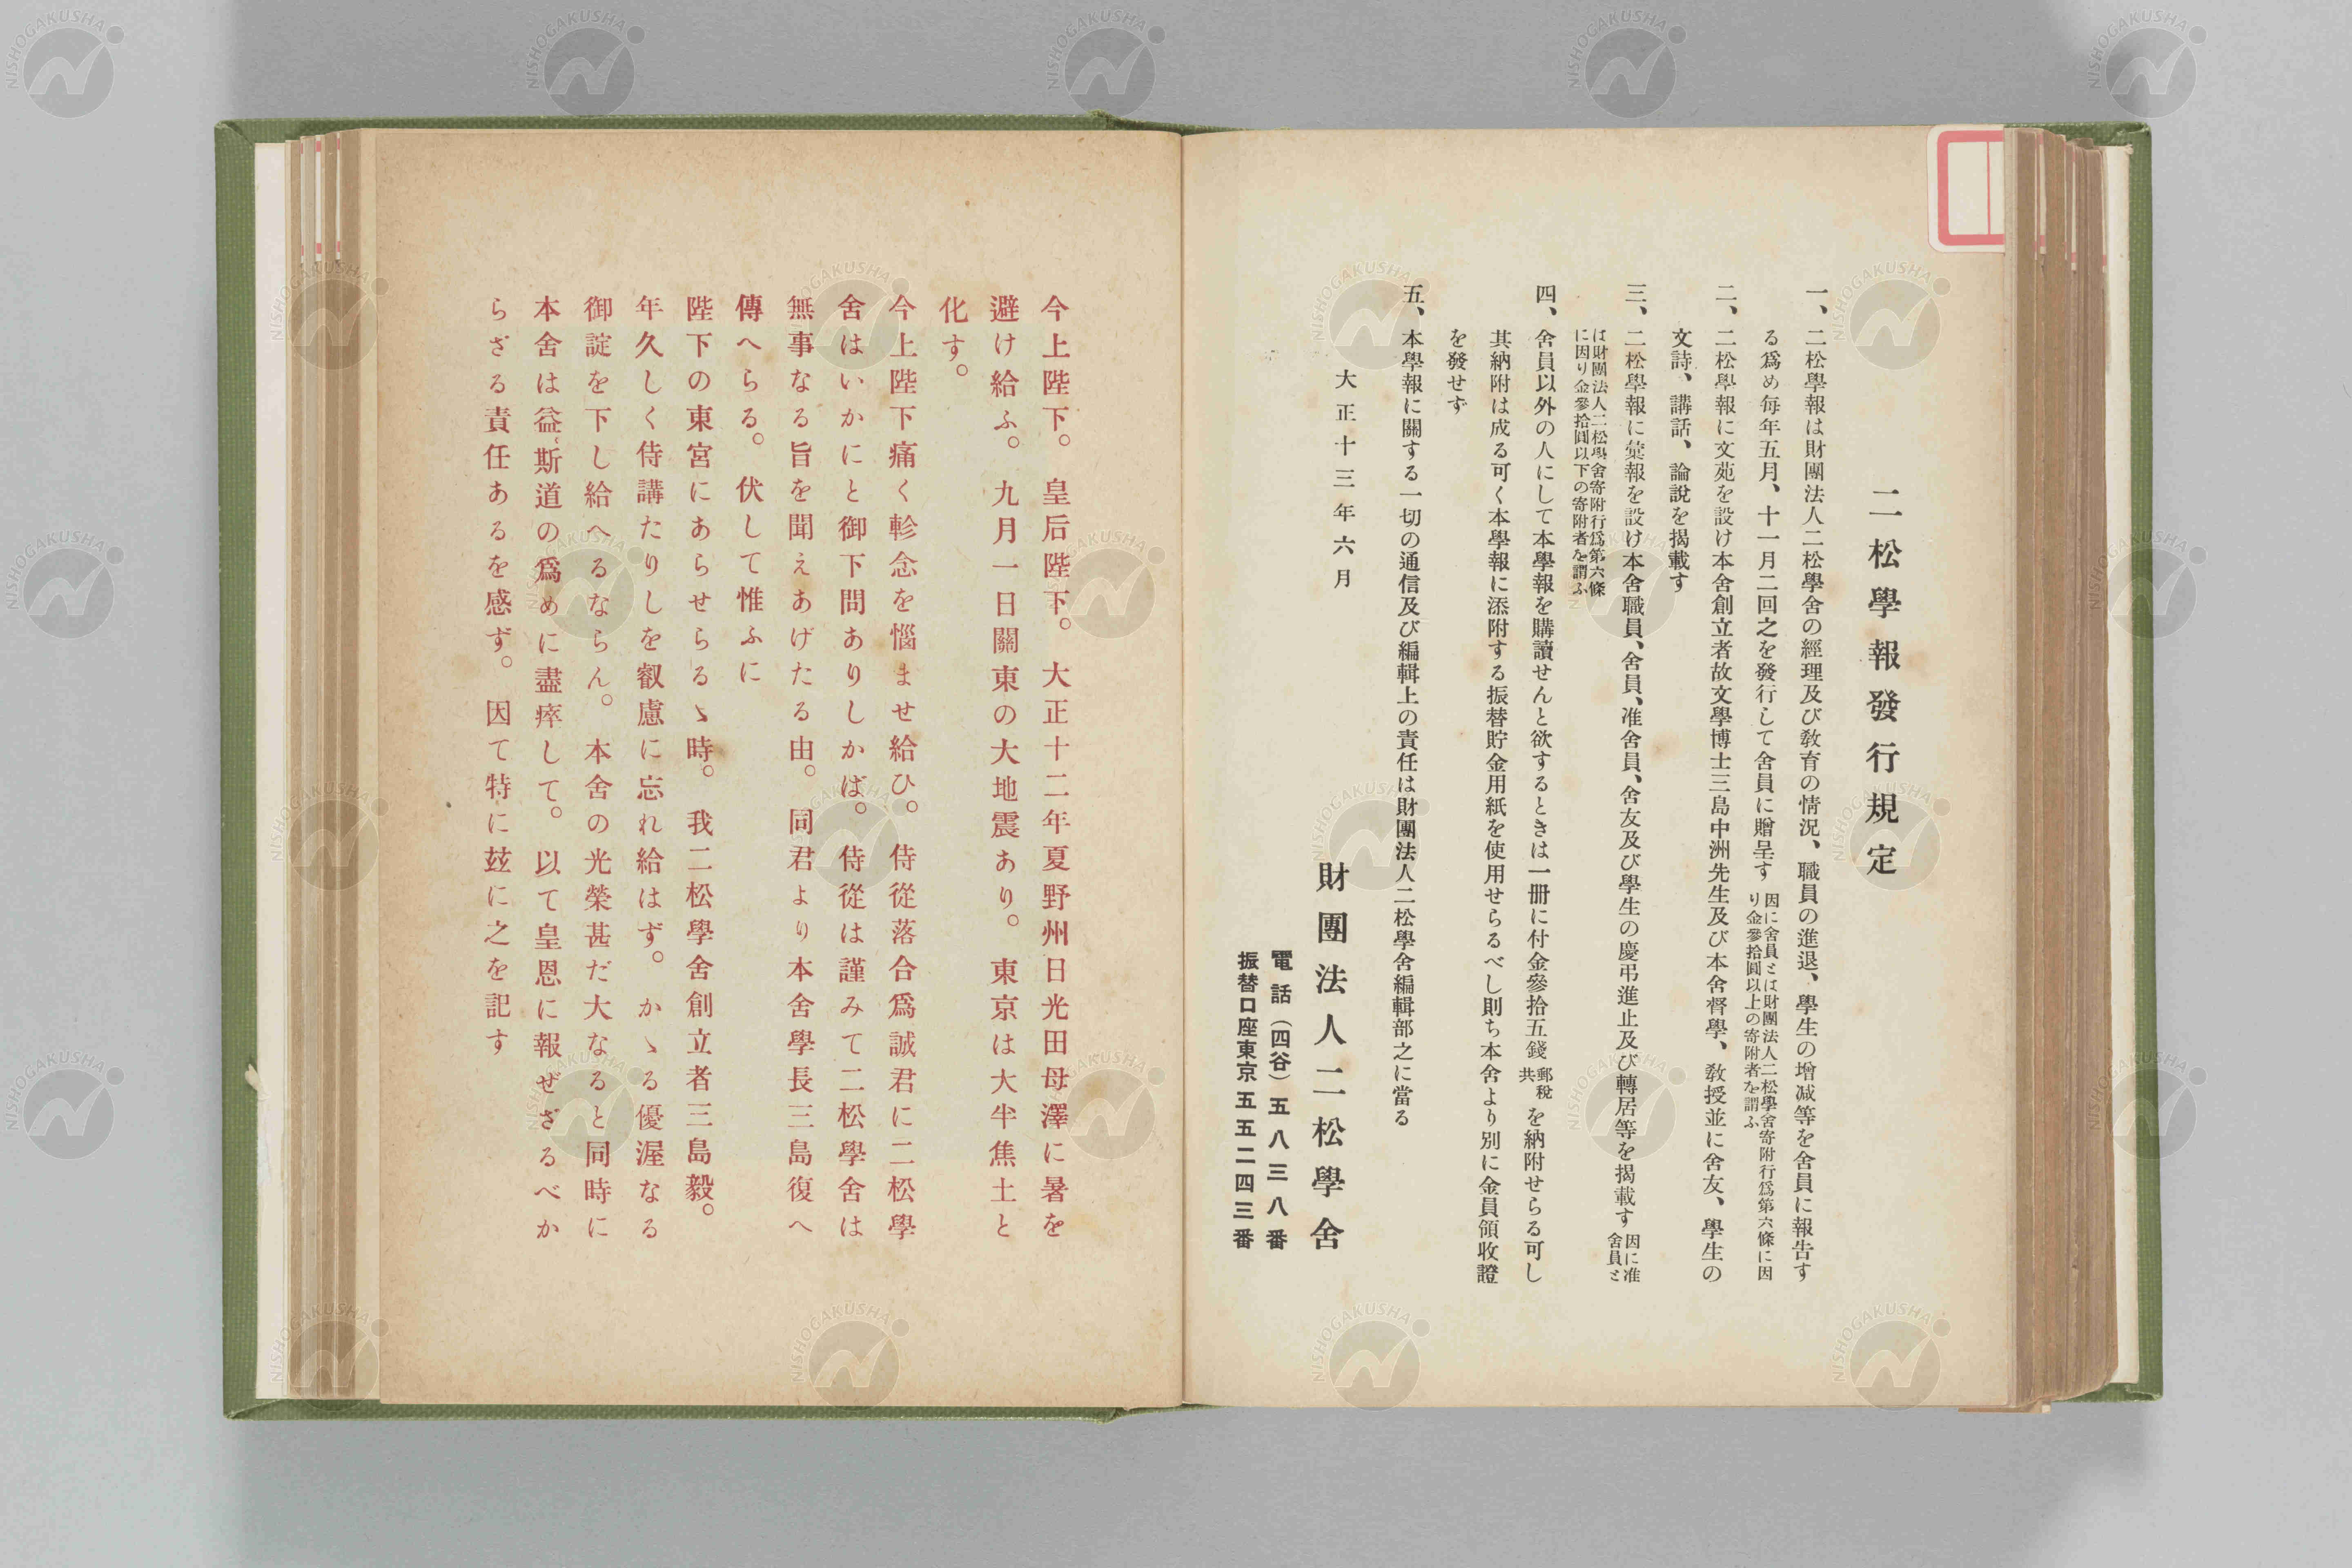 二松學報發行規定
一、二松學報は財團法人二松學舍の經理及び敎育の情況、職員の進退、學生の增减等を舍員に報告す
る爲め每年五月、十一月二回之を發行して舍員に贈呈す
因に舍員とは財團法人二松學舍寄附行爲第六條に因
り金參拾圓以上の寄附者を謂ふ
二、二松學報に文苑を設け本舍創立者故文學博士三島中洲先生及び本舍督學、敎授並に舍友、學生の
文詩、講話、論說を揭載す
三、二松學報に彙報を設け本舍職員、舍員、准舍員、舍友及び學生の慶弔進止及び轉居等を揭載す
因に准
舍員と
は財團法人二松學舍寄附行爲第六條
に因り金參拾圓以下の寄附者を謂ふ
四、舍員以外の人にして本學報を購讀せんと欲するときは一册に付金參拾五錢郵稅共を納附せらる可し
其納附は成る可く本學報に添附する振替貯金用紙を使用せらるべし則ち本舍より別に金員領收證
を發せず
五、本學報に關する一切の通信及び編輯上の責任は財團法人二松學舍編輯部之に當る
大正十三年六月
財團法人二松學舍
電話(四谷)五八三八番
振替口座東京五五二四三番
今上陛下。皇后陛下。大正十二年夏野州日光田母澤に暑を
避け給ふ。九月一日關東の大地震あり。東京は大半焦土と
化す。
今上陛下痛く軫念を惱ませ給ひ。侍從落合爲誠君に二松學
舍はいかにと御下問ありしかば。侍從は謹みて二松學舍は
無事なる旨を聞えあげたる由。同君より本舍學長三島復へ
傳へらる。伏して惟ふに
陛下の東宮にあらせらるゝ時。我二松學舍創立者三島毅。
年久しく侍講たりしを叡慮に忘れ給はず。かゝる優渥なる
御諚を下し給へるならん。本舍の光榮甚だ大なると同時に
本舍は益〻斯道の爲めに盡瘁して。以て皇恩に報ぜざるべか
らざる責任あるを感ず。因て特に玆に之を記す
NISHOGAKUSHA